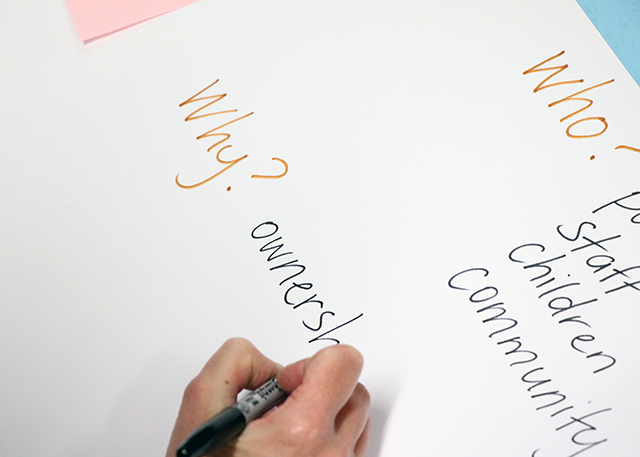 Why?
ownersh
Who?
staff
children
community